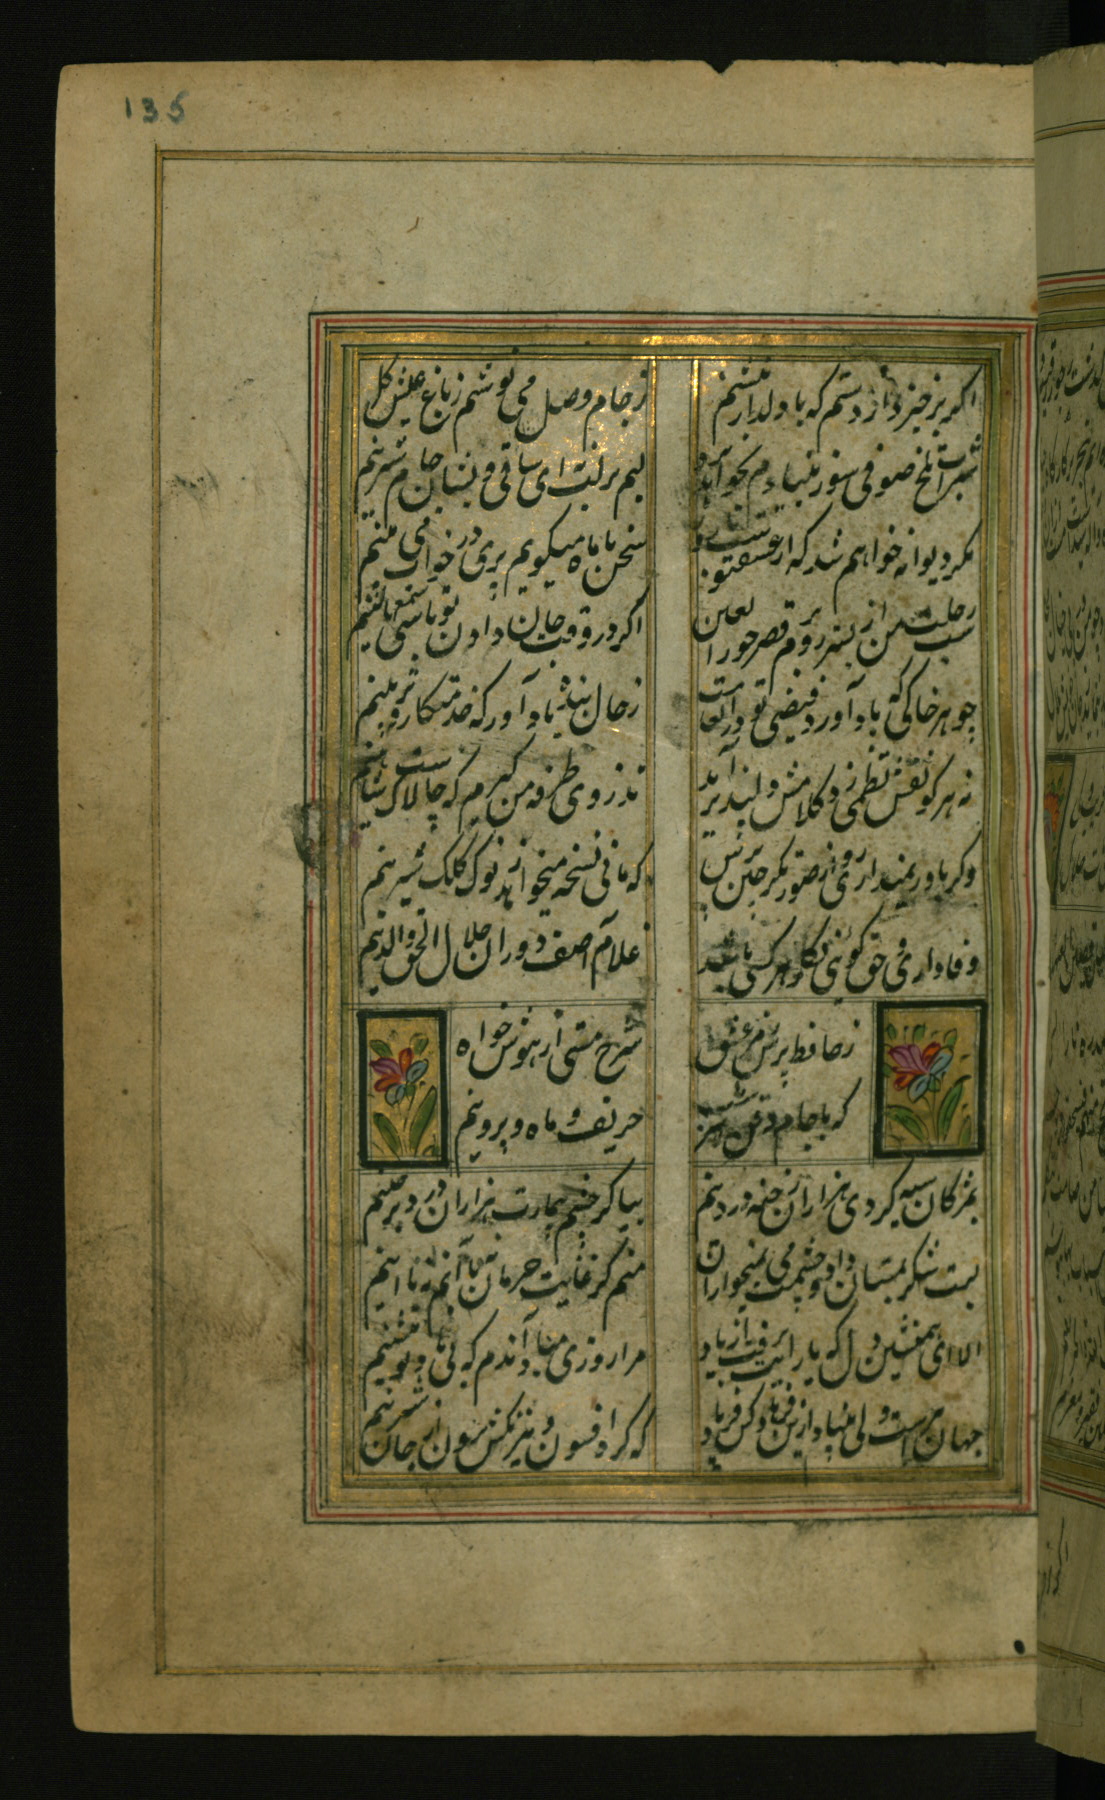 135
اکر برخیزد از دستم که با دلدار بنشینم
ز جام وصل می نوشم ز باغ عیش کل
شراب تلخ صوفی سوز بنیادم بخواهد برد
لبم بر لبت ای ساقی و بستان جان شیرینم
مکر دیوانه خواهم شد که از عشقت
سخن با ماه میکویم پری در خواب می بینم
رحلت من از بستر روم تا قصر حور العین
اکر در وقت جان دادن تو باشی شمع بالینم
چو هر خاکی که باد آورد فیضی
ز حال بنده یاد آور که خدمتکار دیرینم
نه هر کو نقش نظمی زد کلامش دلپذیر آید
تذرو طرفه من کیرم که چالاکست شاهینم
وکر باور نمیداری رو از صورتکر چین پرس
که مانی نسخه میخواهد ز نوک کلک شیرینم
وفاداری و حق کوئی نه کار هر کسی باشد
غلام آصف دوران جلال الحق والدینم
ز حافظ پرس عشق
شرح مستی از هوش خواه
که با جام و قدح
حریف ماه و پروینم
بمژکان سیه کردی هزاران رخنه در دینم
بیا کز چشم بیمارت هزاران درد برچینم
لبت شکر بمستان داد و چشمت می بمیخواران
منم کز غایت حرمان نه با آنم نه با اینم
الا ای همنشین دل که یارانت برفت از یاد
مرا روزی مباد آندم که بی یاد تو بنشینم
جهان پیرست و بی بنیاد ازین فرهادکش فریاد
که کرد افسون و نیرنکش از جان شیرینم